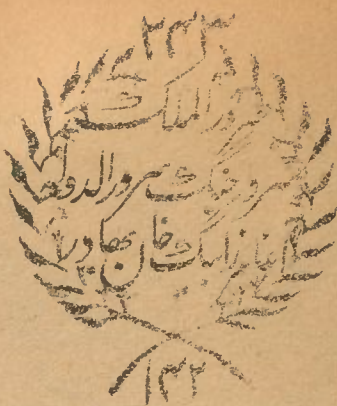 ۲۳۳
سرور الملک
سرور جنگ سرور الدولہ
اغا مرزا بیگ خان بھادر
۱۳۲